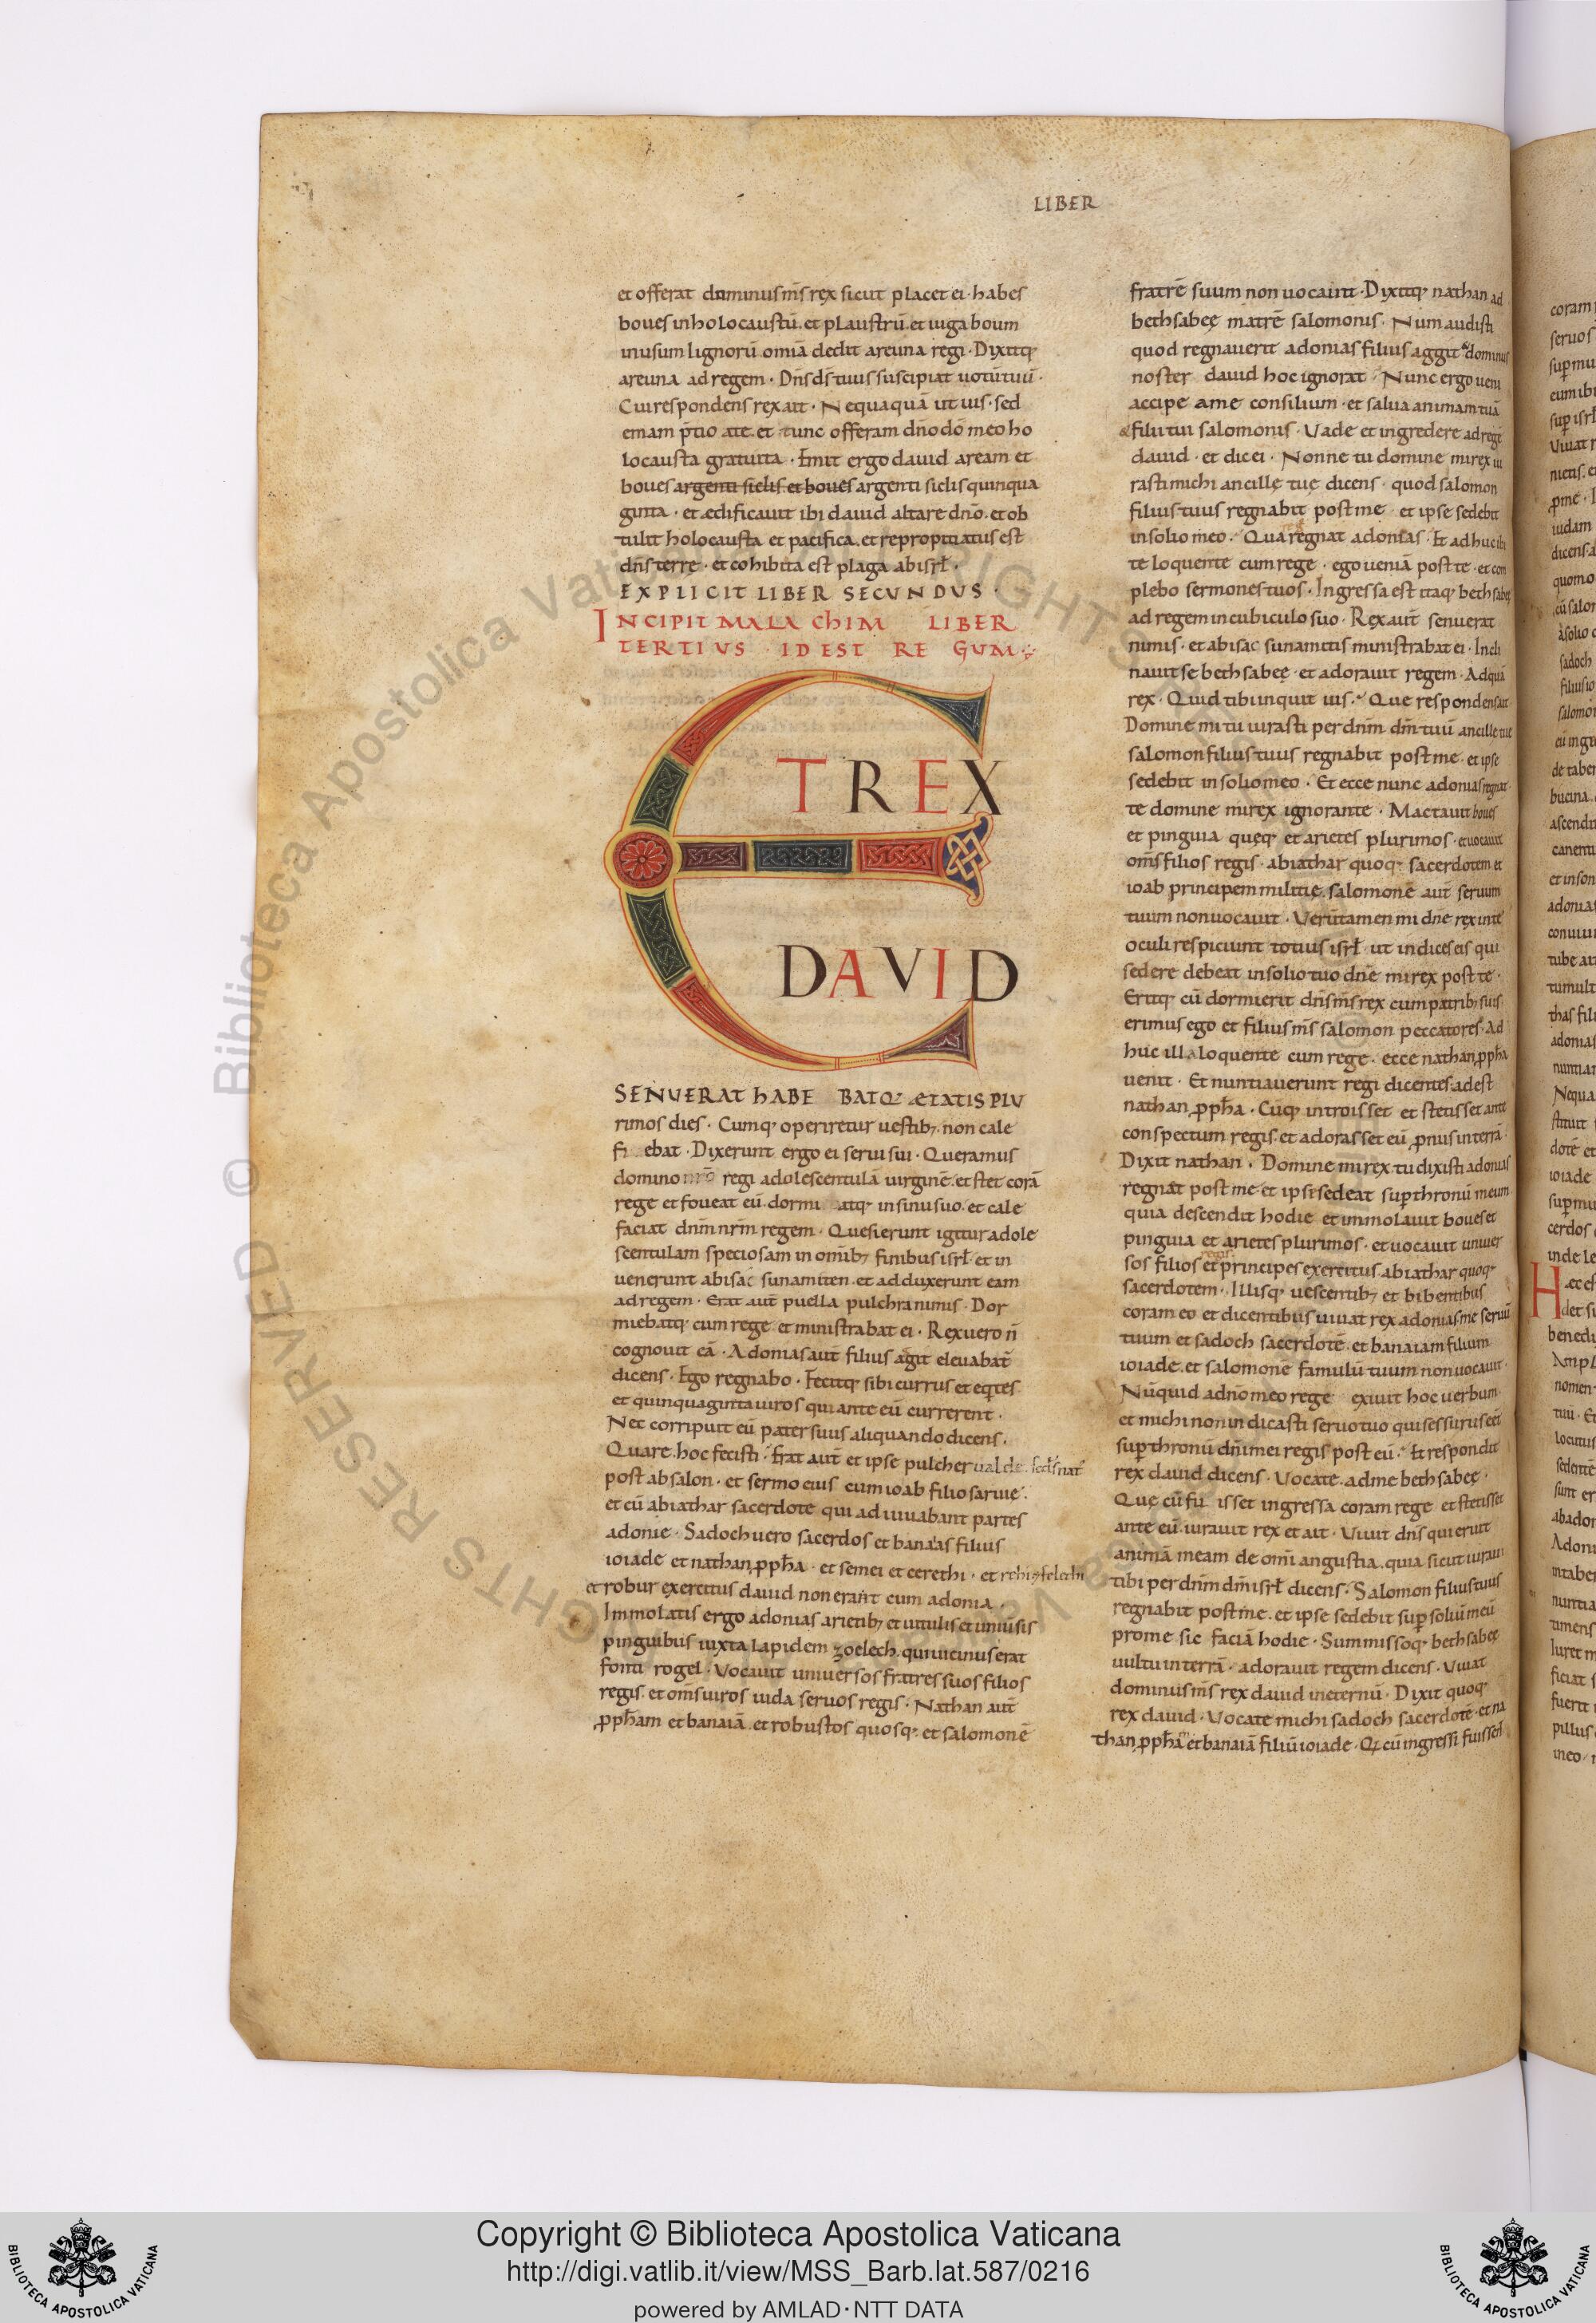 LIBER
et offerat dominus ms̄ rex sicut placet ei · habes
boues in holocaustū · et plaustrū · et iuga boum
in usum lignorū · omīa dedit areuna regi · Dixitq;
areuna ad regem · Dn̄s ds̄ tuus suscipiat uotū tuū ·
Cui respondens rex ait · Nequaquā ut uis · sed
emam p̄tio a te · et tunc offeram dn̄o dō meo ho
locausta gratuita · Emit ergo dauid aream et
boues argenti siclis et boues argenti siclis quinqua
ginta · et ædificauit ibi dauid altare dn̄o · et ob
tulit holocausta et pacifica · et repropitiatus est
dn̄s terrę · et cohibita est plaga ab isrł ·
EXPLICIT LIBER SECUNDUS ·
INCIPIT MALACHIM LIBER
TERTIUS IDEST REGUM
ET REX
DAVID
SENUERAT HABEBATQ; ÆTATIS PLU
rimos dies · Cumq; operiretur uestib; non cale
fi ebat · Dixerunt ergo ei serui sui · Queramus
domino nr̄o regi adolescentulā uirginē · et stet corā
rege et foueat eū · dormi atq; in sinu suo · et cale
faciat dnm̄ nrm̄ regem · Quesierunt igitur adole
scentulam speciosam in omīb; finibus isrł · et in
uenerunt abisac sunamiten · et adduxerunt eam
ad regem · Erat aut̄ puella pulchra nimis · Dor
miebatq; cum rege · et ministrabat ei · Rex uero n̄
cognouit eā · Adonias aut̄ filius agit eleuabat̄
dicens · Ego regnabo · Fecitq; sibi currus et eq̄tes
et quinquaginta uiros qui ante eū currerent ·
Nec corripuit eū pater suus aliquando dicens ·
Quare hoc fecisti · Erat aut̄ et ipse pulcher ualde · sed's nat'
post absalon · et sermo eius cum ioab filio saruie ·
et cū abiathar sacerdote qui adiuuabant partes
adonie · Sadoch uero sacerdos et banaias filius
ioiade et nathan p̱pħa · et semei et cerethi · et felethi
et robur exercitus dauid non erant cum adonia ·
Immolatis ergo adonias arietib; et uitulis et uniūsis
pinguibus iuxta lapidem zoelech · qui uicinus erat
fonti rogel · Vocauit uniuersos fratres suos filios
regis · et om̄s uiros iuda seruos regis · Nathan aut̄
p̱pħam et banaiā · et robustos quosq; et salomonē
fratrē suum non uocauit · Dixitq; nathan ad
bethsabeę matrē salomonis · Num audisti
quod regnauerit adonias filius aggit & dominus
noster dauid hoc ignorat · Nunc ergo ueni
accipe a me consilium · et salua animam tuā
& filii tui salomonis · Vade et ingredere ad regē
dauid · et dic ei · Nonne tu domine mi rex iu
rasti michi ancillę tuę dicens · quod salomon
filius tuus regnabit post me · et ipse sedebit
in solio meo · Quare regnat adonias · Et adhuc ibi
te loquente cum rege · ego ueniā post te · et com
plebo sermones tuos · Ingressa est itaq; bethsabeę
ad regem in cubiculo suo · Rex aut̄ senuerat
nimis · et abisac sunamitis ministrabat ei · Incli
nauit se bethsabeę · et adorauit regem · Ad quā
rex · Quid tibi inquit uis · Que respondens ait
Domine mi tu iurasti per dnm̄ dm̄ tuū ancille tue
salomon filius tuus regnabit post me · et ipse
sedebit in solio meo · Et ecce nunc adonias regnat
te domine mi rex ignorante · Mactauit boues
et pinguia queq; et arietes plurimos · et uocauit
om̄s filios regis · abiathar quoq; sacerdotem et
ioab principem militię · salomonē aut̄ seruum
tuum non uocauit · Verūtamen mi dn̄e rex in te
oculi respiciunt totius isrł · ut indices eis qui
sedere debeat in solio tuo dn̄e mi rex post te ·
Eritq; cū dormierit dn̄s ms̄ rex cum patrib; suis
erimus ego et filius ms̄ salomon peccatores · Ad
huc illa loquente cum rege · ecce nathan p̱pħa
uenit · Et nuntiauerunt regi dicentes · adest
nathan p̱pħa · Cūq; introisset et stetisset ante
conspectum regis · et adorasset eū p̱nus in terrā ·
Dixit nathan · Domine mi rex tu dixisti adonias
regnat post me · et ipse sedeat sup̱ thronū meum
quia descendit hodie et immolauit boues et
pinguia et arietes plurimos · et uocauit uniuer
sos filios regis et principes exercitus abiathar quoq;
sacerdotem · Illisq; uescentib; et bibentibus
coram eo et dicentibus uiuat rex adonias me seruū
tuum et sadoch sacerdotē · et banaiam filium
ioiade · et salomonē famulū tuum non uocauit ·
Nūquid a dn̄o meo rege exiuit hoc uerbum
et michi non indicasti seruo tuo qui sessurus eēt
sup̱ thronū dn̄i mei regis post eū · Et respondit
rex dauid dicens · Vocate ad me bethsabeę ·
Quę cū fu isset ingressa coram rege et stetisset
ante eū · iurauit rex et ait · Viuit dn̄s qui eruit
animā meam de omī angustia · quia sicut iuraui
tibi per dnm̄ dm̄ isrł dicens · Salomon filius tuus
regnabit post me · et ipse sedebit sup̱ soliū meū
pro me · sic faciā hodie · Summissoq; bethsabeę
uultu in terrā · adorauit regem dicens · Viuat
dominus ms̄ rex dauid in eternū · Dixit quoq;
rex dauid · Vocate michi sadoch sacerdotē · et na
than p̱pħam et banaiā filiū ioiade · Q̱ cū ingressi fuissent
Copyright © Biblioteca Apostolica Vaticana
http://digi.vatlib.it/view/MSS_Barb.lat.587/0216
powered by AMLAD·NTT DATA
BIBLIOTECA APOSTOLICA VATICANA
BIBLIOTECA APOSTOLICA VATICANA